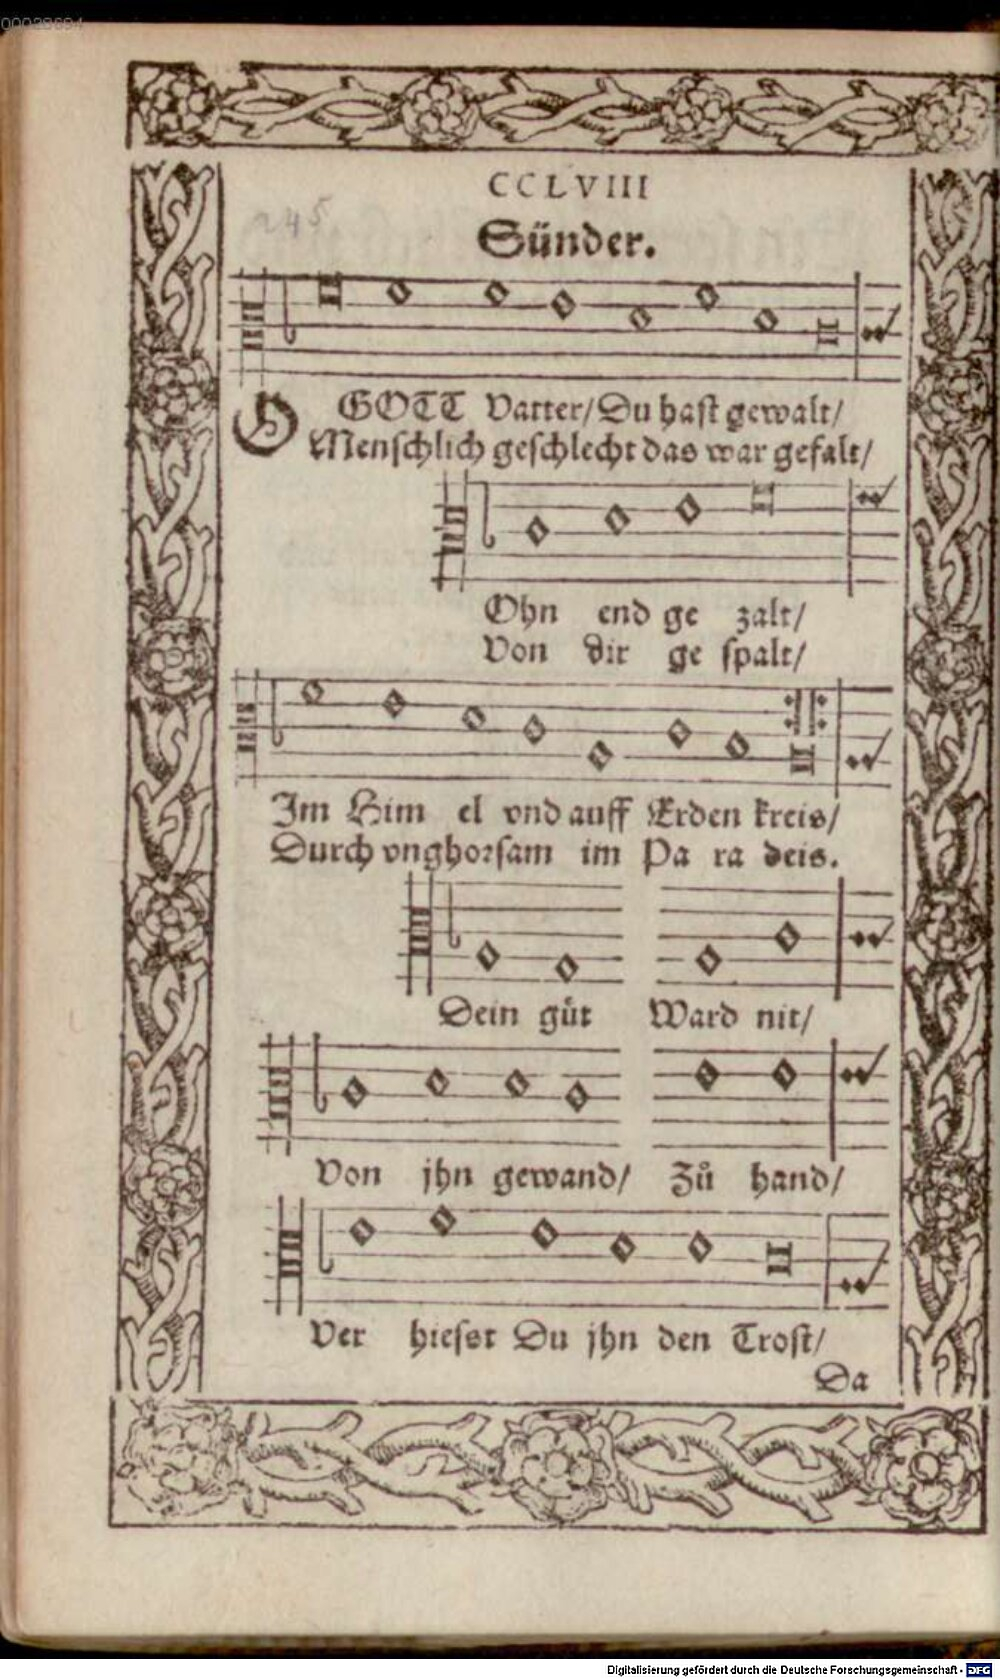 00028694
CCLVIII
245
Sünder.
O GOTT Vatter/ Du hast gewalt/
Menschlich geschlecht das war gefalt/
Ohn end ge zalt/
Von dir ge spalt/
Im Him el vnd auff Erden kreis/
Durch vnghorsam im Pa ra deis.
Dein guͤt Ward nit/
Von jhn gewand/ Zů hand/
Ver hiesst Du jhn den Trost/
Da
Digitalisierung gefördert durch die Deutsche Forschungsgemeinschaft - DFG